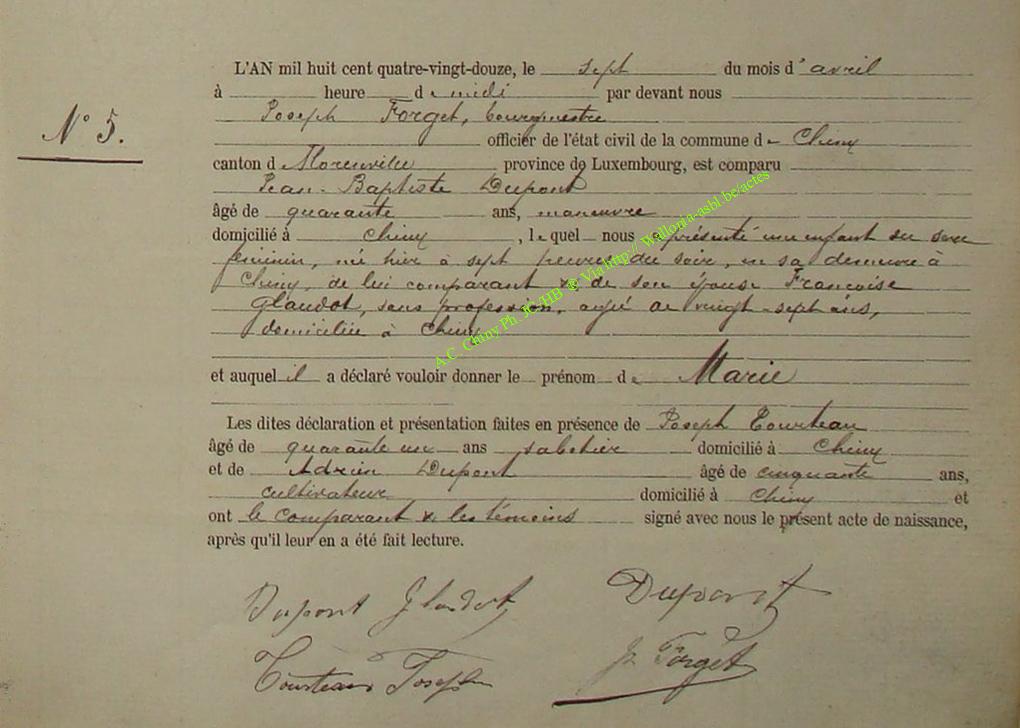 L'AN mil huit cent quatre-vingt-douze, le sept du mois d'avril
à heure de midi par devant nous
Joseph Forget, bourgmestre
N° 5.
officier de l'état civil de la commune de Chiny
canton de Florenville province de Luxembourg, est comparu
Jean-Baptiste Dupont
âgé de quarante ans, manœuvre
domicilié à Chiny, lequel nous a présenté un enfant du sexe
féminin, née hier à sept heures du soir, en sa demeure à
Chiny, de lui comparant & de son épouse Françoise
Glaudot, sans profession, agée de vingt-sept ans,
domiciliée à Chiny
et auquel il a déclaré vouloir donner le prénom de Marie
Les dites déclaration et présentation faites en présence de Joseph Tourteau
âgé de quarante un ans sabotier domicilié à Chiny
et de Adrien Dupont âgé de cinquante ans,
cultivateur domicilié à Chiny et
ont le comparant & les témoins signé avec nous le présent acte de naissance,
après qu'il leur en a été fait lecture.
Dupont Glaudot Dupont
Tourteau Joseph J. Forget
A.C. Chiny Ph. JC/HB @ Via http:// Wallonia-asbl.be/actes